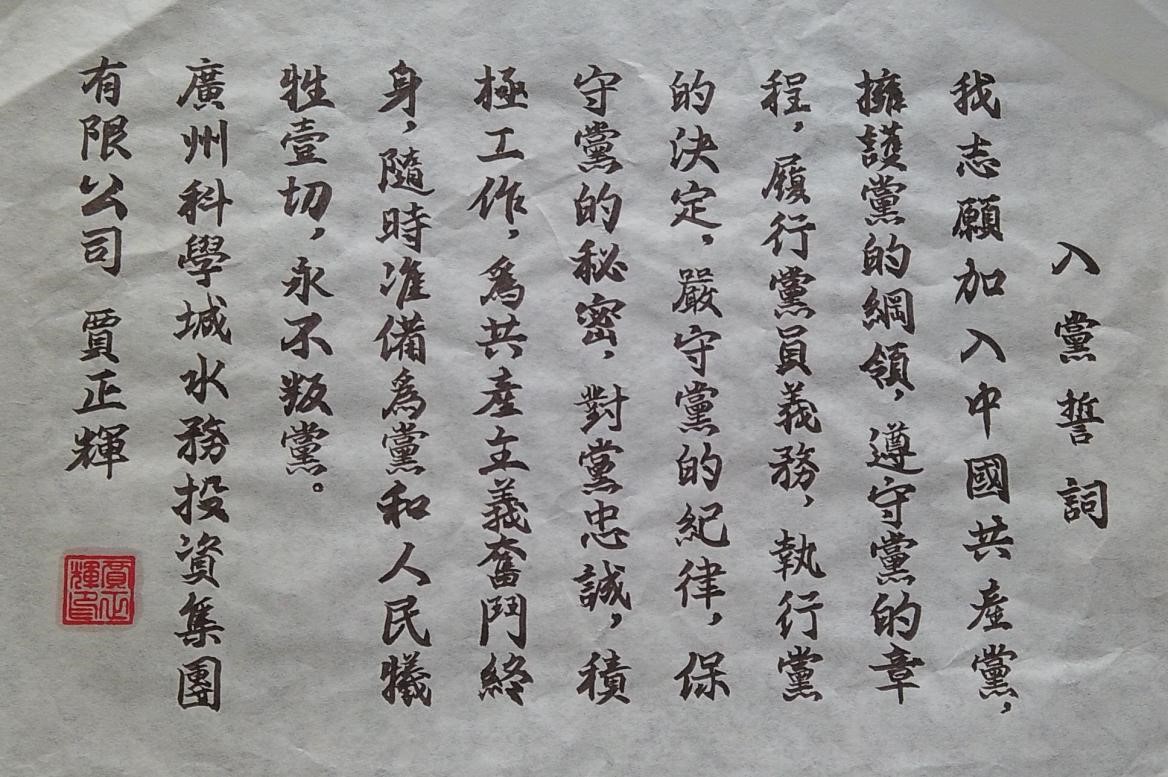 入黨誓詞
我志願加入中國共產黨，
擁護黨的綱領，遵守黨的章
程，履行黨員義務，執行黨
的決定，嚴守黨的紀律，保
守黨的秘密，對黨忠誠，積
極工作，爲共產主義奮鬥終
身，隨時准備爲黨和人民犧
牲壹切，永不叛黨。
廣州科學城水務投資集團
有限公司 賈正輝
賈正輝印